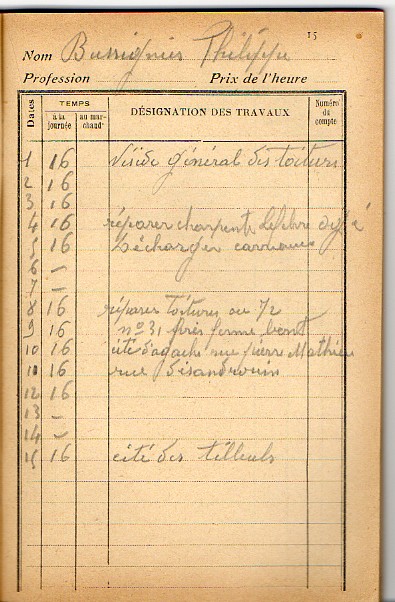 15
Nom Bussignies Philippe
Profession Prix de l'heure
Dates TEMPS à la journée au mar-chand DÉSIGNATION DES TRAVAUX Numéro du compte
1 16 général des toitures
2 16
3 16
4 16 réparer charpente Lefebre
5 16 Décharger carreaux
6 –
7 –
8 16 réparer toitures au 72
9 16 n° 31 près ferme
10 16 cité d'agache rue pierre Mathieu
11 16 rue Désandrouin
12 16
13 –
14 –
15 16 cité des tilleuls